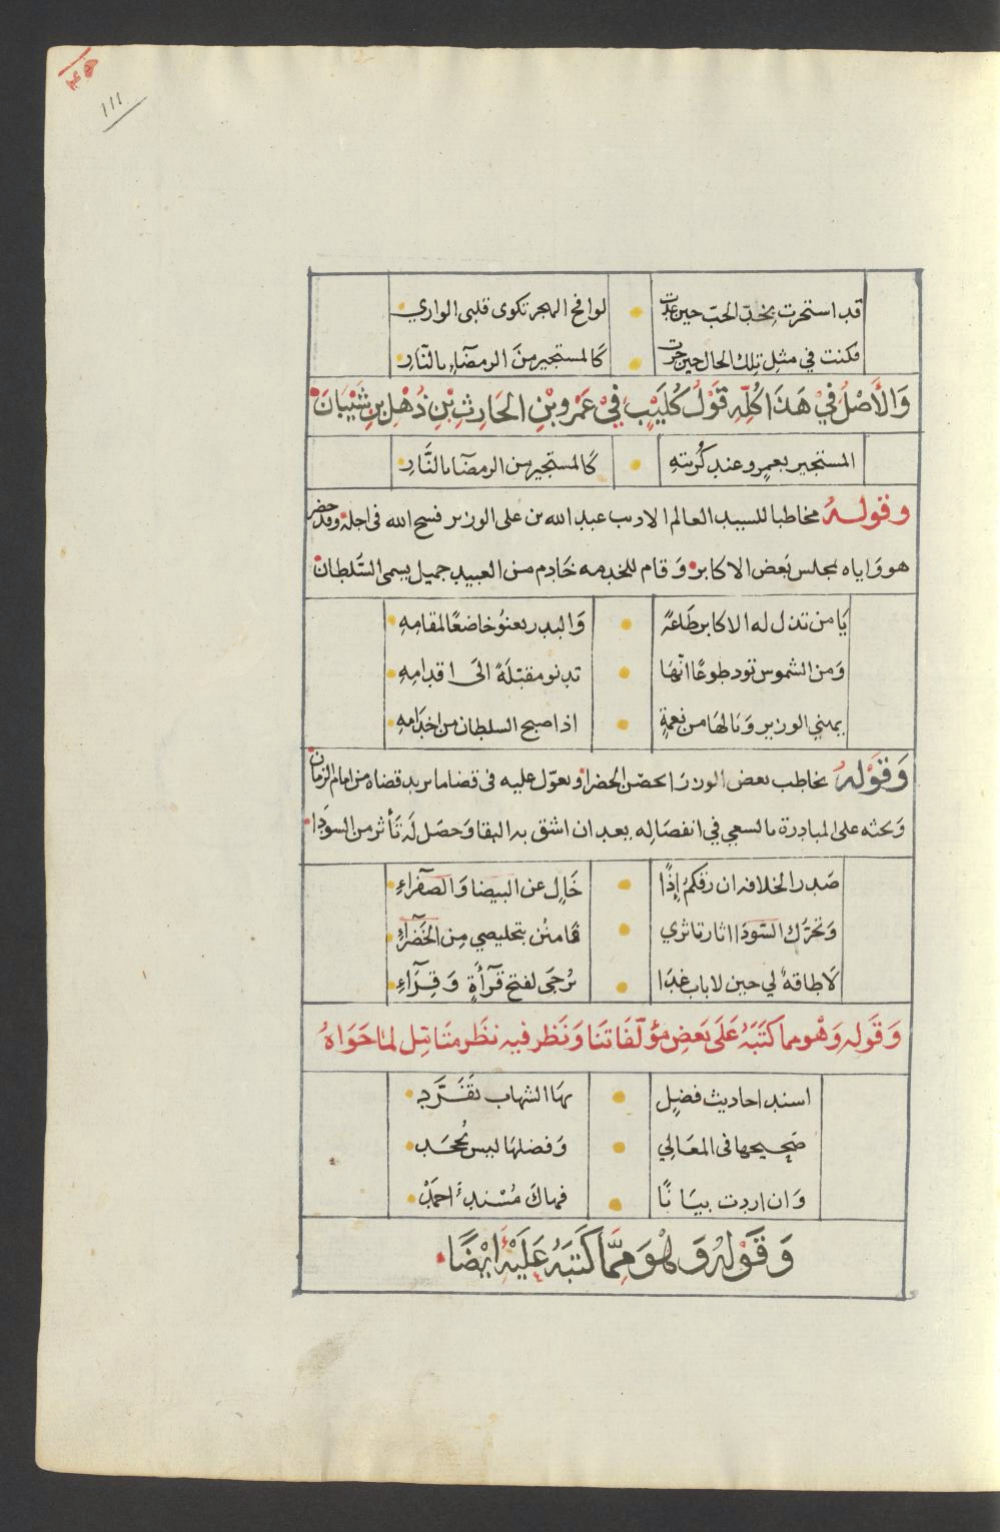 ١١١
قد استجرت بخدّ الحبّ حين غدت لوافح الهجر تكوى قلبى الواري
فكنت في مثل تلك الحال حين جرت كالمستجير منَ الرمضآءِ بالنّار
وَالأَصْلُ فيْ هَذَا كُلِّهِ قَوْلُ كُلَيْبٍ فِيْ عَمْروِ بْنِ الحَارِثِ بْنِ ذُهْلِ بنِ شَيْبَانَ
المستجير بعمرٍو عند كُربتهِ كَالمستجير من الرمضآ بالنَّار
وقوله مخاطبا للسيد العالم الاديب عبد الله بن على الوزير فسح الله فى اجله وقد حضر
هو وَاياه بمجلس بَعض الاكابر وَقام للخدمه خَادم من العبيد جميل يسمى السّلطان
يَا من تذل له الاكابر طَاعةً وَالبدر يعنوُ خاضعًا لمقامِهِ
وَمن الشموس تود طوعًا انّها تدنو مقبّلةً الىَ اقدامِهِ
يهني الوزير وَنالها من نعمةٍ اذا صبح السلطان من خدَامهِ
وَقَوْلهُ يخاطب بعض الوزرَا بحصْن الحضرا ويعوّل عليه فى قضا ما يريد قضاه من امام الزمان
وَيحثه على المبادرة بالسعي في انفصَاله بعد ان اشق به البقا وَحصَل لَه تَأثر من السودَا
صَدر الخلافه ان رَفكمْ إِذًا خَالٍ عن البيضا وَالصّفراءِ
وَتحرّك السّودَا اثار تاثري فامنُن بتخليصي مِن الخَضرآءِ
لاَ طاقةٌ لي حين لا باب غدَا يُرجَى لفتح قرآءةٍ وَقِرَآءِ
وَقَوله وَهْو مما كَتَبَهُ عَلَى بَعضِ مؤلّفَاتنَا وَنَظر فيه نَظَر متَاملٍ لمَا حَوَاهُ
اسند احاديث فضلٍ بهَا الشهاب تَفَرَّد
صَحِيحها فى المعَالي وَفضلهَا ليس يُجحَد
وَان اردت بيَانًا فهاكَ مُسْند أَحمَدْ
وَقَوْلهُ وَهْوَ مِمَّا كَتَبَهُ عَلَيْهِ ايْضًا